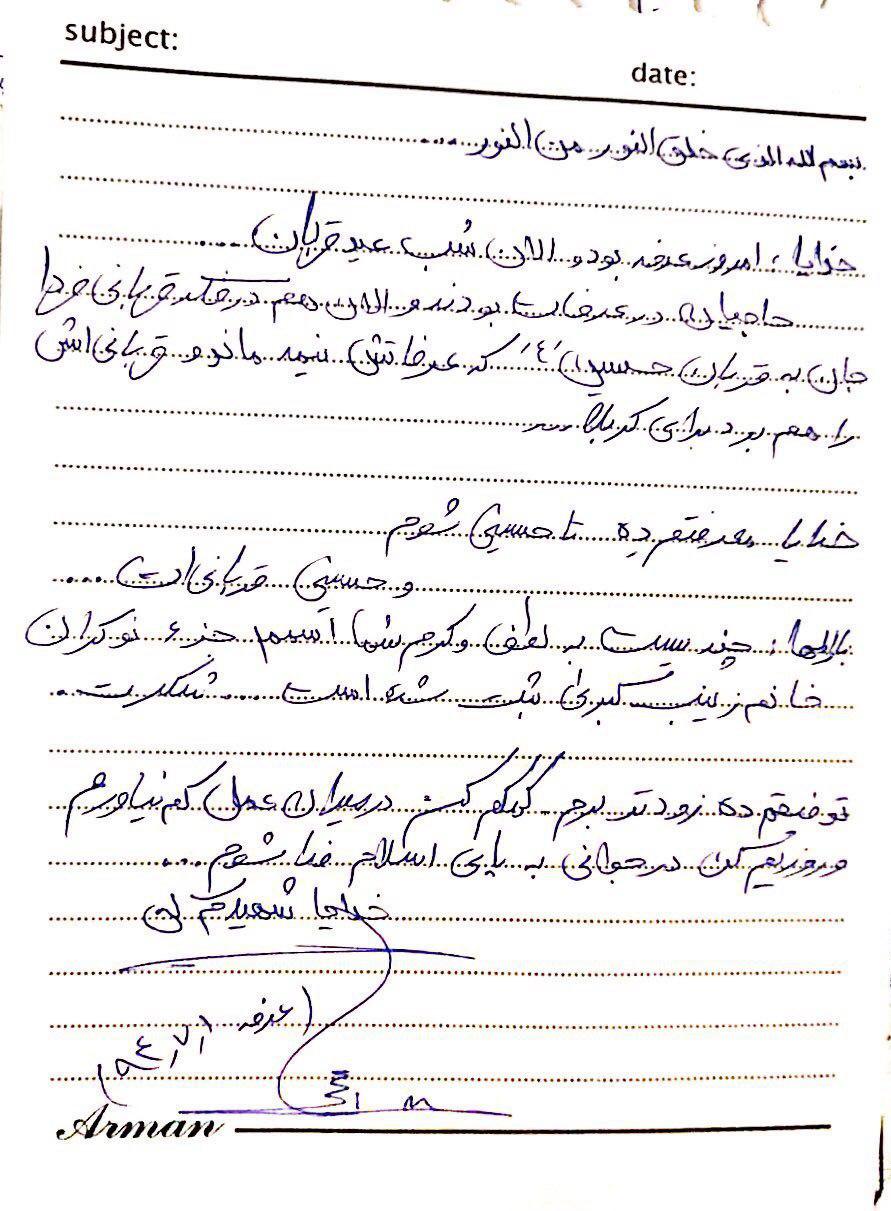 subject:
date:
بسم الله الذی خلق النور من النور ...
خدایا ؛ امروز عرفه بود و الان شب عید قربان ....
حاجیان در عرفات بودند و الان هم در فکر قربانی فردا
جان به قربان حسین (ع) که عرفاتش نیمه ماند و قربانی اش
را هم برد برای کربلا ...
خدایا معرفتم ده تا حسینی شوم
و حسینی قربانی ات ....
بارالها ؛ چند سیست به لطف و کرم شما اسمم جزء نوکران
خانم زینب کبری ثبت شده است .... شکرت ..
توفیقم ده زودتر برم. کمکم کن در میزان عمل کم نیاورم
و روزیم کن در جوانی به پای اسلام فدا شوم ...
خدایا شهیدم کن
(عرفه ۹۴,۷,۱)
Arman